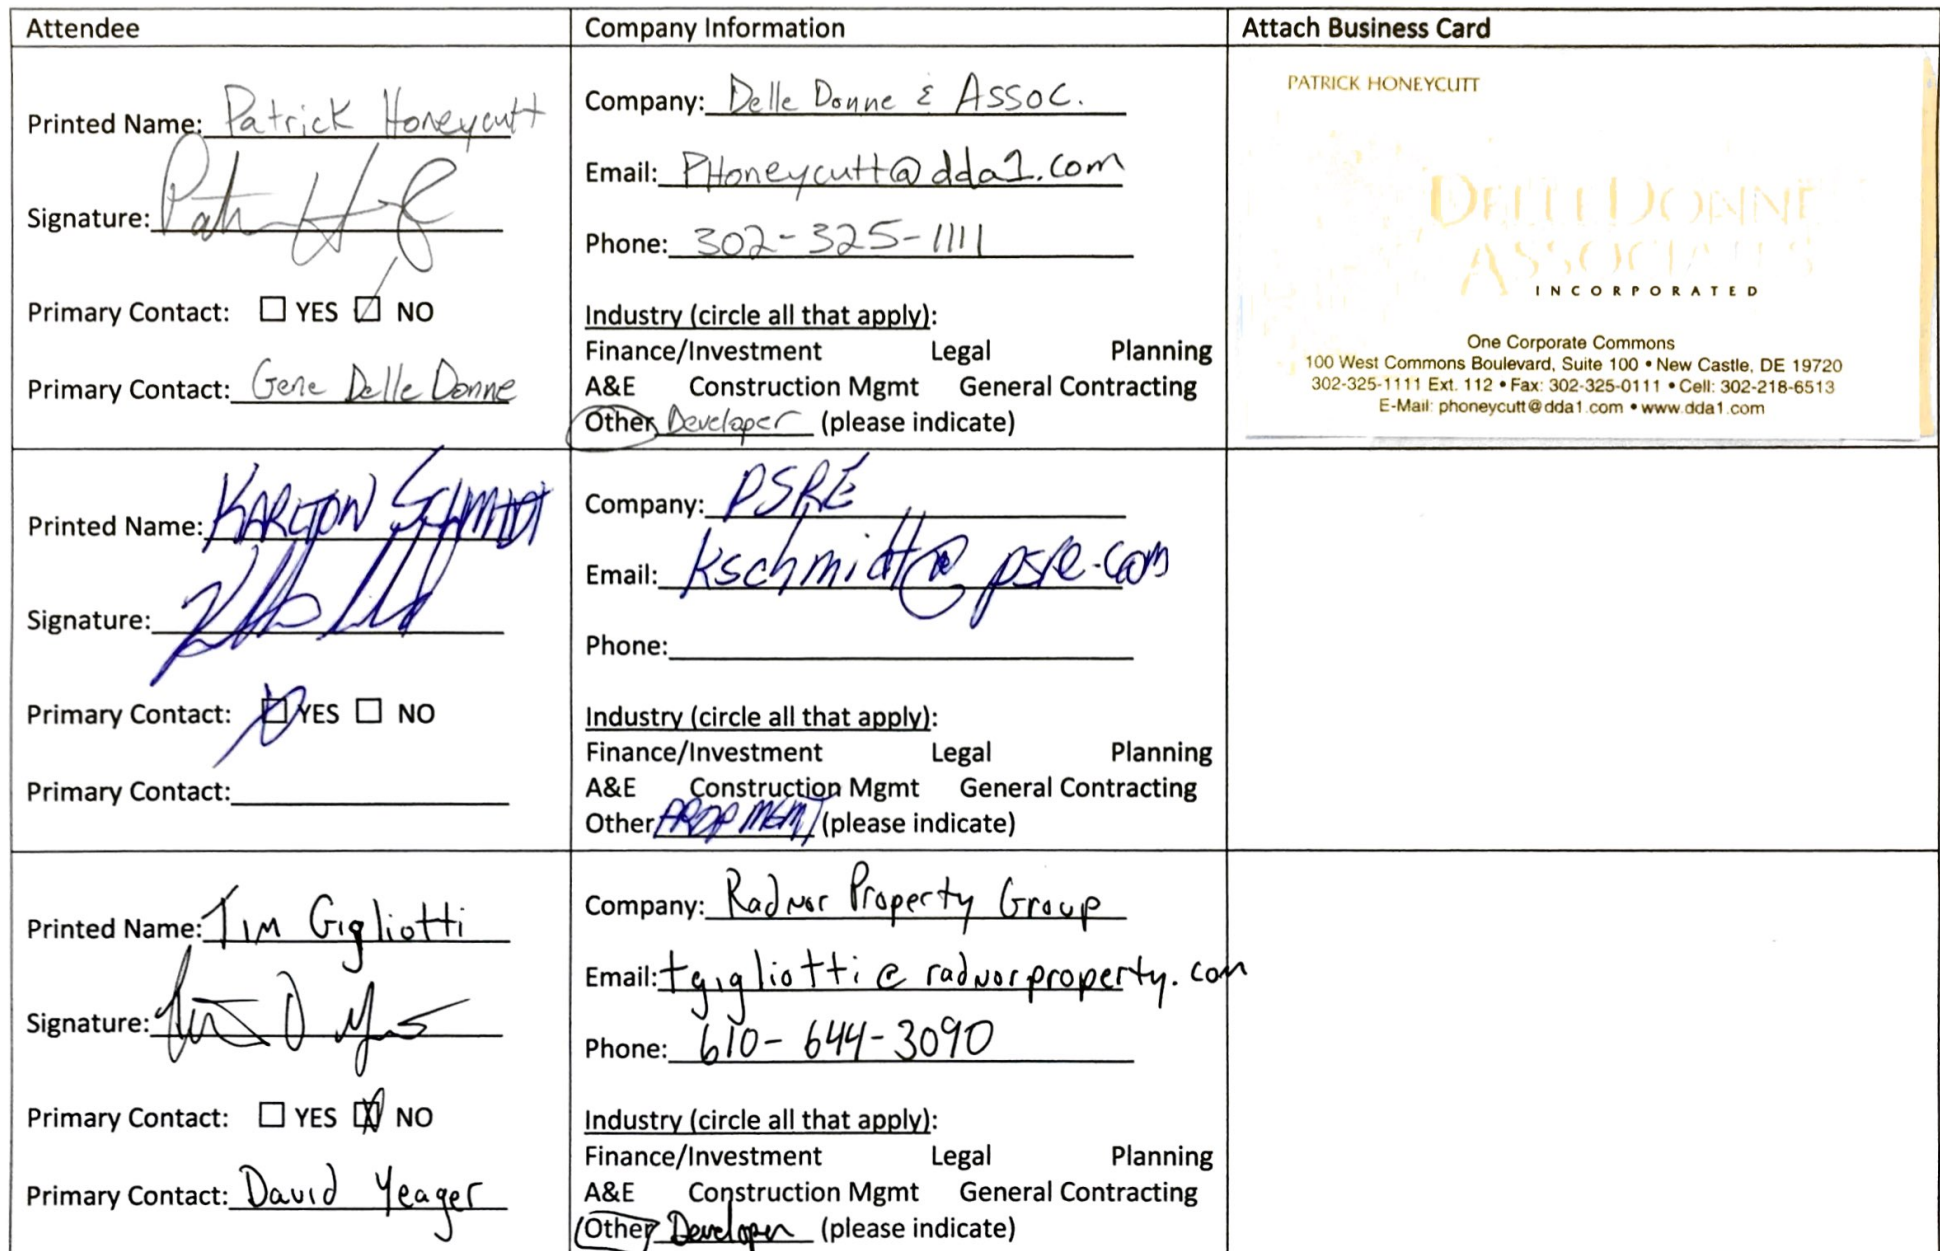 Attendee
Company Information
Attach Business Card
Printed Name: Patrick Honeycutt
Signature:
Primary Contact: ☐ YES ☑ NO
Primary Contact: Gene Delle Donne
Company: Delle Donne & Assoc.
Email: PHoneycutt@dda1.com
Phone: 302-325-1111
Industry (circle all that apply):
Finance/Investment Legal Planning
A&E Construction Mgmt General Contracting
Other Developer (please indicate)
PATRICK HONEYCUTT
DELLE DONNE
ASSOCIATES
INCORPORATED
One Corporate Commons
100 West Commons Boulevard, Suite 100 • New Castle, DE 19720
302-325-1111 Ext. 112 • Fax: 302-325-0111 • Cell: 302-218-6513
E-Mail: phoneycutt@dda1.com • www.dda1.com
Printed Name: KARLTON SCHMIDT
Signature:
Primary Contact: ☑ YES ☐ NO
Primary Contact:
Company: PSRE
Email: kschmidt@psre.com
Phone:
Industry (circle all that apply):
Finance/Investment Legal Planning
A&E Construction Mgmt General Contracting
Other PROP MGMT (please indicate)
Printed Name: Tim Gigliotti
Signature:
Primary Contact: ☐ YES ☒ NO
Primary Contact: David Yeager
Company: Radnor Property Group
Email: tgigliotti@radnorproperty.com
Phone: 610-644-3090
Industry (circle all that apply):
Finance/Investment Legal Planning
A&E Construction Mgmt General Contracting
Other Developer (please indicate)